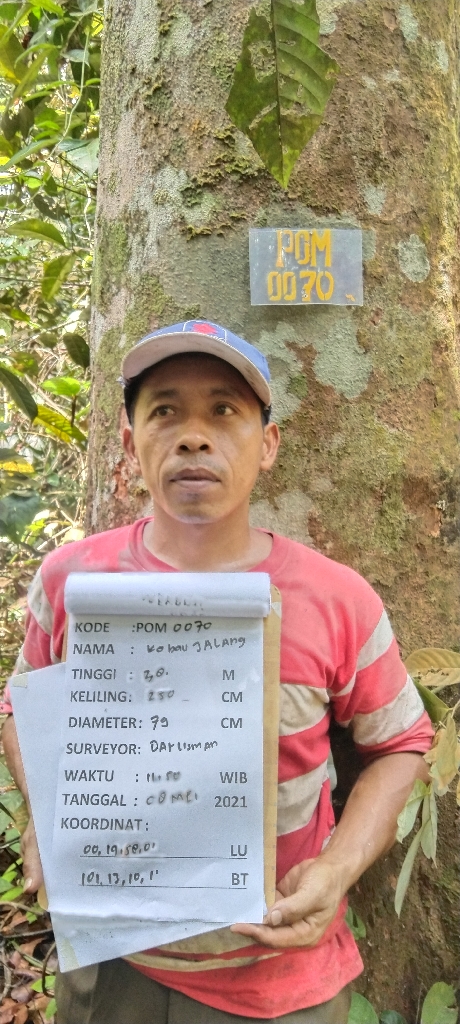 POM
0070
KODE :POM 0070
NAMA : Kobau JALANG
TINGGI : M
KELILING: 250 CM
DIAMETER: 79 CM
SURVEYOR: Darlisman
WAKTU : 11.50 WIB
TANGGAL : 08 Mei 2021
KOORDINAT:
00,19,58,01 LU
101,13,10,1' BT